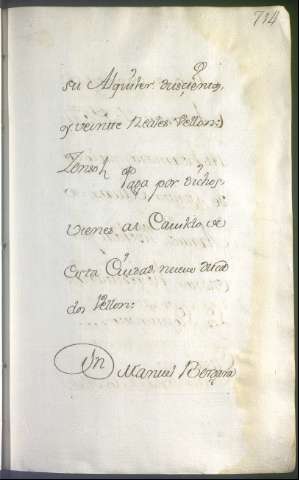 714
su Alquiler dusçientos,
y veintte Reales Vellon:
Zenso
paga por dichos
vienes al Cavildo de
esta Ciudad nueve duca
dos Vellon:
Manuel Bergara